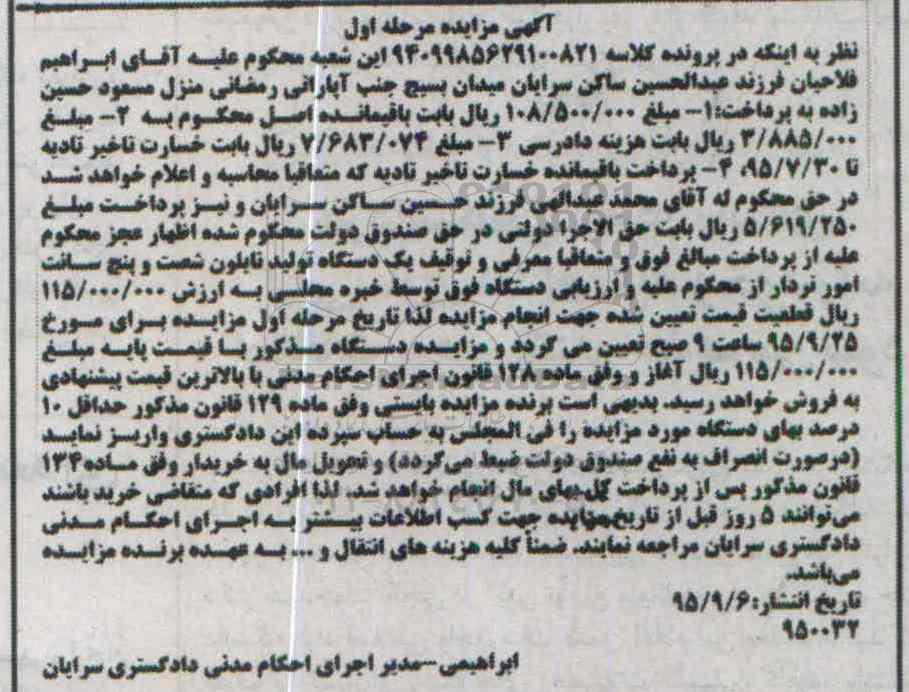 آگهی مزایده مرحله اول
نظر به اینکه در پرونده کلاسه ۹۴۰۹۹۸۵۶۲۹۱۰۰۸۲۱ این شعبه محکوم علیه آقای ابراهیم
فلاحیان فرزند عبدالحسین ساکن سرایان میدان بسیج جنب آپاراتی رمضانی منزل مسعود حسین
زاده به پرداخت:۱- مبلغ ۱۰۸/۵۰۰/۰۰۰ ریال بابت باقیمانده اصل محکوم به ۲- مبلغ
۳/۸۸۵/۰۰۰ ریال بابت هزینه دادرسی ۳- مبلغ ۷/۶۸۳/۰۷۴ ریال بابت خسارت تاخیر تادیه
تا ۹۵/۷/۳۰، ۴- پرداخت باقیمانده خسارت تاخیر تادیه که متعاقبا محاسبه و اعلام خواهد شد
در حق محکوم له آقای محمد عبدالهی فرزند حسین ساکن سرایان و نیز پرداخت مبلغ
۵/۶۱۹/۲۵۰ ریال بابت حق الاجرا دولتی در حق صندوق دولت محکوم شده اظهار عجز محکوم
علیه از پرداخت مبالغ فوق و متعاقبا معرفی و توقیف یک دستگاه تولید نایلون شصت و پنج سانت
امور نردار از محکوم علیه و ارزیابی دستگاه فوق توسط خبره محلی به ارزش ۱۱۵/۰۰۰/۰۰۰
ریال قطعیت قیمت تعیین شده جهت انجام مزایده لذا تاریخ مرحله اول مزایده برای مورخ
۹۵/۹/۲۵ ساعت ۹ صبح تعیین می گردد و مزایده دستگاه مذکور با قیمت پایه مبلغ
۱۱۵/۰۰۰/۰۰۰ ریال آغاز و وفق ماده ۱۲۸ قانون اجرای احکام مدنی با بالاترین قیمت پیشنهادی
به فروش خواهد رسید. بدیهی است برنده مزایده بایستی وفق ماده ۱۲۹ قانون مذکور حداقل ۱۰
درصد بهای دستگاه مورد مزایده را فی المجلس به حساب سپرده این دادگستری واریز نماید
(درصورت انصراف به نفع صندوق دولت ضبط می‌گردد) و تحویل مال به خریدار وفق ماده۱۳۴
قانون مذکور پس از پرداخت کل بهای مال انجام خواهد شد. لذا افرادی که متقاضی خرید باشند
می‌توانند ۵ روز قبل از تاریخ مزایده جهت کسب اطلاعات بیشتر به اجرای احکام مدنی
دادگستری سرایان مراجعه نمایند. ضمناً کلیه هزینه های انتقال و ... به عهده برنده مزایده
می‌باشد.
تاریخ انتشار:۹۵/۹/۶
۹۵۰۰۳۲
ابراهیمی-مدیر اجرای احکام مدنی دادگستری سرایان